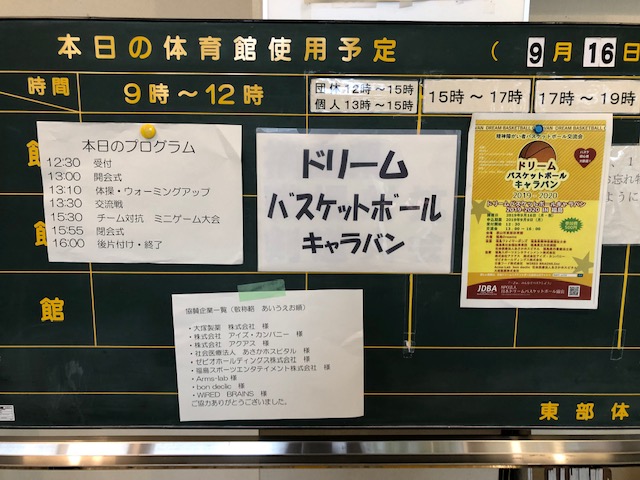 本日の体育館使用予定
（ 9月16日
時間
9時～12時
団体12時～15時
個人13時～15時
15時～17時
17時～19時
館
館
本日のプログラム
12:30 受付
13:00 開会式
13:10 体操・ウォーミングアップ
13:30 交流戦
15:30 チーム対抗 ミニゲーム大会
15:55 閉会式
16:00 後片付け・終了
ドリーム
バスケットボール
キャラバン
VAN DREAM BASKETBALL
精神障がい者バスケットボール交流会
ドリーム
バスケットボール
キャラバン
2019-2020
ドリームバスケットボールキャラバン
2019-2020 IN 福島
JDBA
協賛企業一覧（敬称略 あいうえお順）
・大塚製薬 株式会社 様
・株式会社 アイズ・カンパニー 様
・株式会社 アクアス 様
・社会医療法人 あさかホスピタル 様
・ゼビオホールディングス株式会社 様
・福島スポーツエンタテイメント株式会社 様
・Arms-lab 様
・bon declic 様
・WIRED BRAINS 様
ご協力ありがとうございました。
東部体